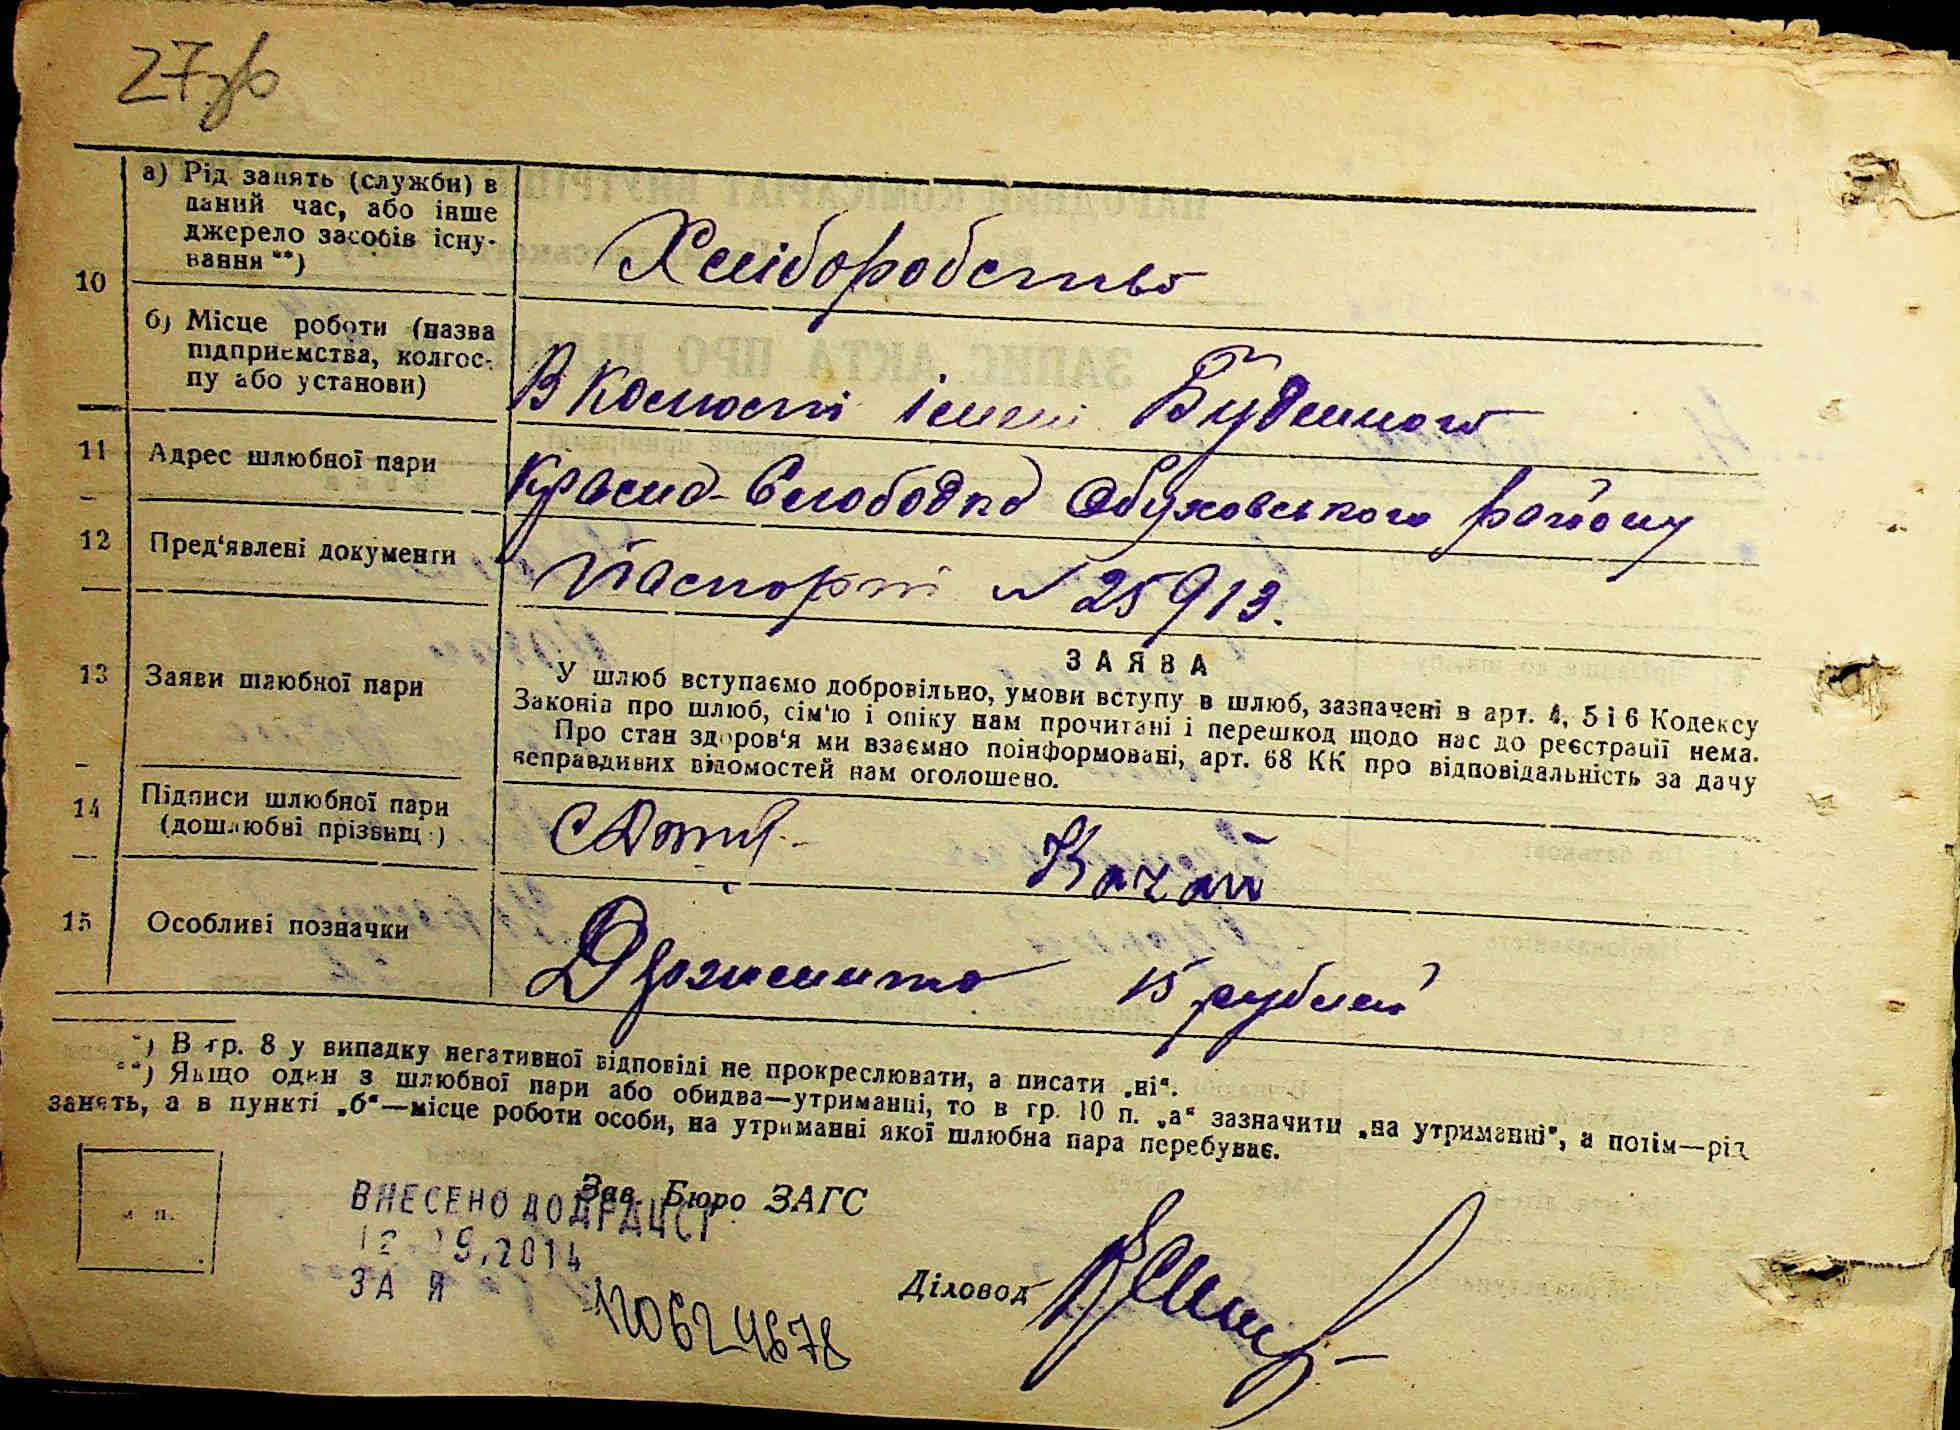 27зв
10
а) Рід занять (служби) в
даний час, або інше
джерело засобів існу-
вання **)
Хліборобство
б) Місце роботи (назва
підприємства, колгос-
пу або установи)
В колгоспі імені Будьоного
11 Адрес шлюбної пари
Красна-Слободка Обуховського району
12 Пред'явлені документи
Паспорт № 25913.
13 Заяви шлюбної пари
ЗАЯВА
У шлюб вступаємо добровільно, умови вступу в шлюб, зазначені в арт. 4, 5 і 6 Кодексу
Законів про шлюб, сім'ю і опіку нам прочитані і перешкод щодо нас до реєстрації нема.
Про стан здоров'я ми взаємно поінформовані, арт. 68 КК про відповідальність за дачу
неправдивих відомостей нам оголошено.
14 Підписи шлюбної пари
(дошлюбні прізвища)
Качан
15 Особливі позначки
Держмито 15 рублей
*) В гр. 8 у випадку негативної відповіді не прокреслювати, а писати „ні“.
**) Якщо один з шлюбної пари або обидва—утриманці, то в гр. 10 п. „а“ зазначити „на утриманні“, а потім—рід
занять, а в пункті „б“—місце роботи особи, на утриманні якої шлюбна пара перебуває.
м п.
Зав. Бюро ЗАГС
ВНЕСЕНО ДО ДРАЦСГ
2014
ЗА Я
Діловод